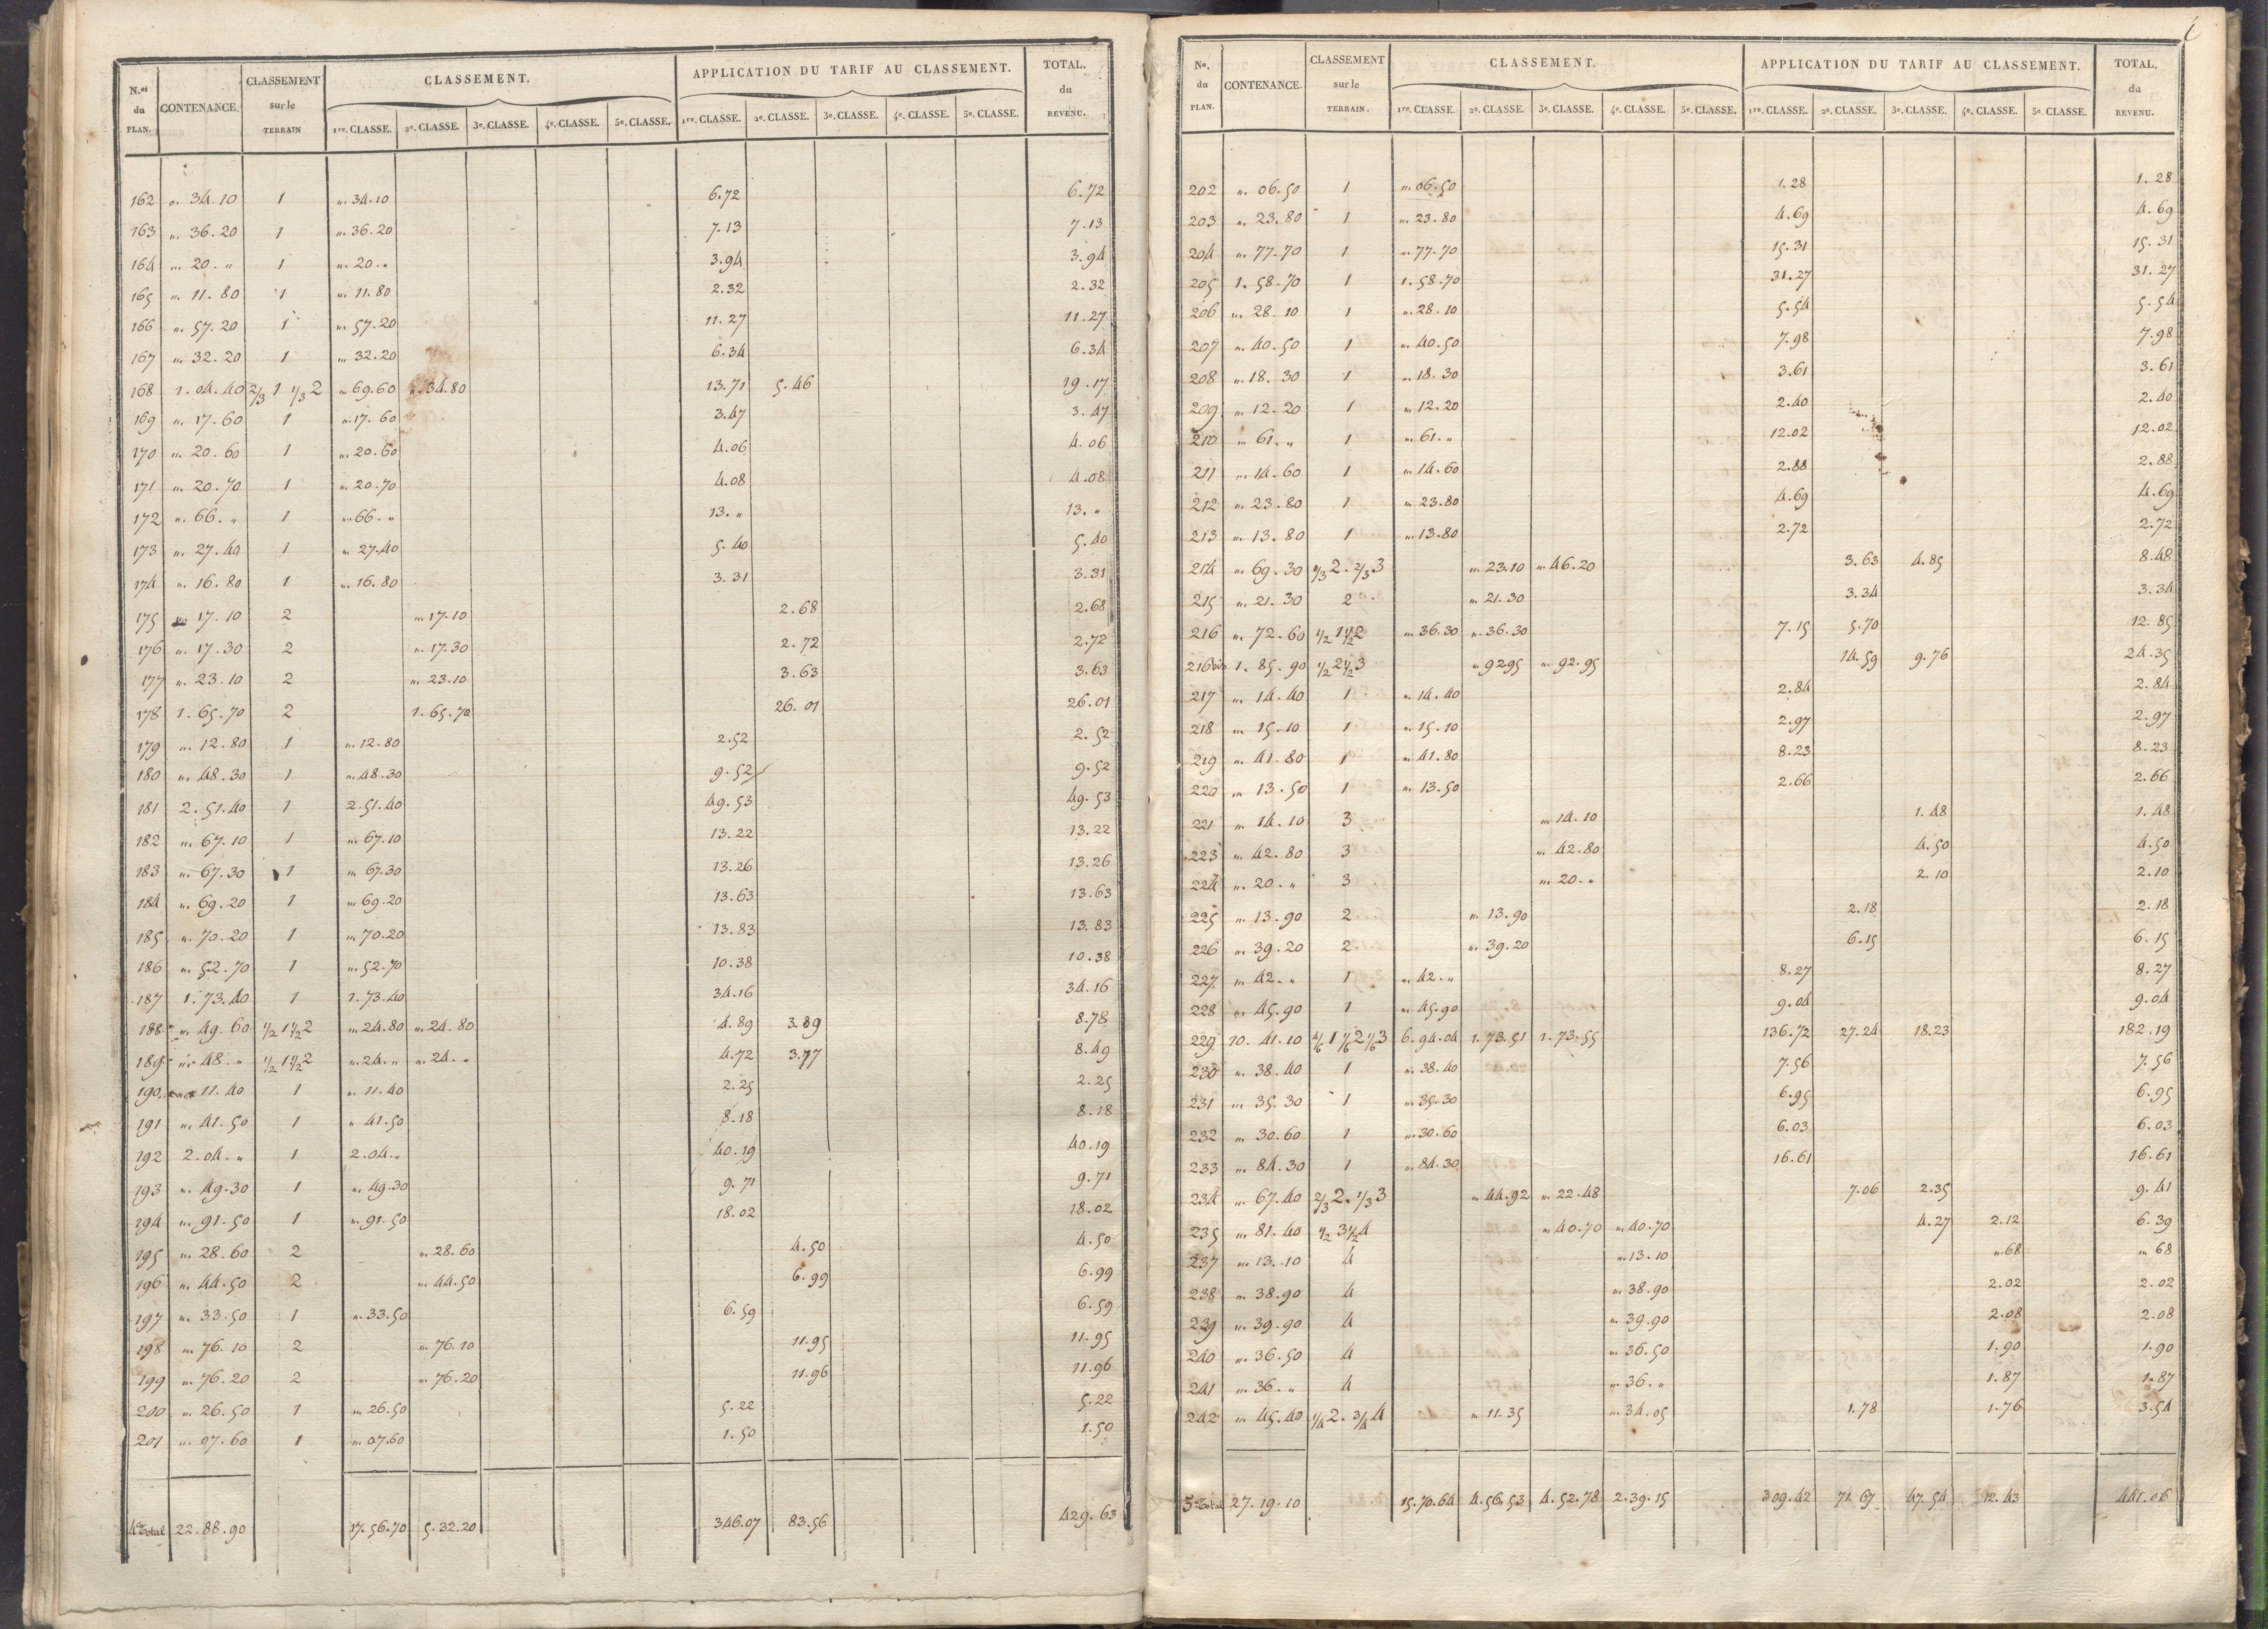 N.os du PLAN. CONTENANCE. CLASSEMENT sur le TERRAIN CLASSEMENT. APPLICATION DU TARIF AU CLASSEMENT. TOTAL. du REVENU.
1re. CLASSE. 2e. CLASSE. 3e. CLASSE. 4e. CLASSE. 5e. CLASSE. 1re. CLASSE. 2e. CLASSE. 3e. CLASSE. 4e. CLASSE. 5e. CLASSE.
162 „. 34.10 1 „. 34.10 6.72 6.72
163 „. 36.20 1 „. 36.20 7.13 7.13
164 „. 20. „ 1 „. 20. „ 3.94 3.94
165 „. 11.80 1 „. 11.80 2.32 2.32
166 „. 57.20 1 „. 57.20 11.27 11.27
167 „. 32.20 1 „. 32.20 6.34 6.34
168 1.04.40 2/3 1 1/3 2 „. 69.60 „. 34.80 13.71 5.46 19.17
169 „. 17.60 1 „. 17.60 3.47 3.47
170 „. 20.60 1 „. 20.60 4.06 4.06
171 „. 20.70 1 „. 20.70 4.08 4.08
172 „. 66. „ 1 „. 66. „ 13. „ 13. „
173 „. 27.40 1 „. 27.40 5.40 5.40
174 „. 16.80 1 „. 16.80 3.31 3.31
175 „. 17.10 2 „. 17.10 2.68 2.68
176 „. 17.30 2 „. 17.30 2.72 2.72
177 „. 23.10 2 „. 23.10 3.63 3.63
178 1.65.70 2 1.65.70 26.01 26.01
179 „. 12.80 1 „. 12.80 2.52 2.52
180 „. 48.30 1 „. 48.30 9.52 9.52
181 2.51.40 1 2.51.40 49.53 49.53
182 „. 67.10 1 „. 67.10 13.22 13.22
183 „. 67.30 1 „. 67.30 13.26 13.26
184 „. 69.20 1 „. 69.20 13.63 13.63
185 „. 70.20 1 „. 70.20 13.83 13.83
186 „. 52.70 1 „. 52.70 10.38 10.38
187 1.73.40 1 1.73.40 34.16 34.16
188 „. 49.60 1/2 1 1/2 2 „. 24.80 „. 24.80 4.89 3.89 8.78
189 „. 48. „ 1/2 1 1/2 2 „. 24. „ „. 24. „ 4.72 3.77 8.49
190 „. 11.40 1 „. 11.40 2.25 2.25
191 „. 41.50 1 „. 41.50 8.18 8.18
192 2.04. „ 1 2.04. „ 40.19 40.19
193 „. 49.30 1 „. 49.30 9.71 9.71
194 „. 91.50 1 „. 91.50 18.02 18.02
195 „. 28.60 2 „. 28.60 4.50 4.50
196 „. 44.50 2 „. 44.50 6.99 6.99
197 „. 33.50 1 „. 33.50 6.59 6.59
198 „. 76.10 2 „. 76.10 11.95 11.95
199 „. 76.20 2 „. 76.20 11.96 11.96
200 „. 26.50 1 „. 26.50 5.22 5.22
201 „. 07.60 1 „. 07.60 1.50 1.50
4e Total 22.88.90 17.56.70 5.32.20 346.07 83.56 429.63
No. du PLAN. CONTENANCE. CLASSEMENT sur le TERRAIN. CLASSEMENT. APPLICATION DU TARIF AU CLASSEMENT. TOTAL. du REVENU.
1re. CLASSE. 2e. CLASSE. 3e. CLASSE. 4e. CLASSE. 5e. CLASSE. 1re. CLASSE. 2e. CLASSE. 3e. CLASSE. 4e. CLASSE. 5e. CLASSE.
202 „. 06.50 1 „. 06.50 1.28 1.28
203 „. 23.80 1 „. 23.80 4.69 4.69
204 „. 77.70 1 „. 77.70 15.31 15.31
205 1.58.70 1 1.58.70 31.27 31.27
206 „. 28.10 1 „. 28.10 5.54 5.54
207 „. 40.50 1 „. 40.50 7.98 7.98
208 „. 18.30 1 „. 18.30 3.61 3.61
209 „. 12.20 1 „. 12.20 2.40 2.40
210 „. 61. „ 1 „. 61. „ 12.02 12.02
211 „. 14.60 1 „. 14.60 2.88 2.88
212 „. 23.80 1 „. 23.80 4.69 4.69
213 „. 13.80 1 „. 13.80 2.72 2.72
214 „. 69.30 1/3 2. 2/3 3 „. 23.10 „. 46.20 3.63 4.85 8.48
215 „. 21.30 2 „. 21.30 3.34 3.34
216 „. 72.60 1/2 1 1/2 2 „. 36.30 „. 36.30 7.15 5.70 12.85
216 bis 1.85.90 1/2 2 1/2 3 „. 92.95 „. 92.95 14.59 9.76 24.35
217 „. 14.40 1 „. 14.40 2.84 2.84
218 „. 15.10 1 „. 15.10 2.97 2.97
219 „. 41.80 1 „. 41.80 8.23 8.23
220 „. 13.50 1 „. 13.50 2.66 2.66
221 „. 14.10 3 „. 14.10 1.48 1.48
223 „. 42.80 3 „. 42.80 4.50 4.50
224 „. 20. „ 3 „. 20. „ 2.10 2.10
225 „. 13.90 2 „. 13.90 2.18 2.18
226 „. 39.20 2 „. 39.20 6.15 6.15
227 „. 42. „ 1 „. 42. „ 8.27 8.27
228 „. 45.90 1 „. 45.90 9.04 9.04
229 10.41.10 4/6 1 1/6 2 1/6 3 6.94.04 1.73.51 1.73.55 136.72 27.24 18.23 182.19
230 „. 38.40 1 „. 38.40 7.56 7.56
231 „. 35.30 1 „. 35.30 6.95 6.95
232 „. 30.60 1 „. 30.60 6.03 6.03
233 „. 84.30 1 „. 84.30 16.61 16.61
234 „. 67.40 2/3 2. 1/3 3 „. 44.92 „. 22.48 7.06 2.35 9.41
235 „. 81.40 1/2 3 1/2 4 „. 40.70 „. 40.70 4.27 2.12 6.39
237 „. 13.10 4 „. 13.10 „. 68 „. 68
238 „. 38.90 4 „. 38.90 2.02 2.02
239 „. 39.90 4 „. 39.90 2.08 2.08
240 „. 36.50 4 „. 36.50 1.90 1.90
241 „. 36. „ 4 „. 36. „ 1.87 1.87
242 „. 45.40 1/4 2. 3/4 4 „. 11.35 „. 34.05 1.78 1.76 3.54
5e Total 27.19.10 15.70.64 4.56.53 4.52.78 2.39.15 309.42 71.67 47.54 12.43 441.06